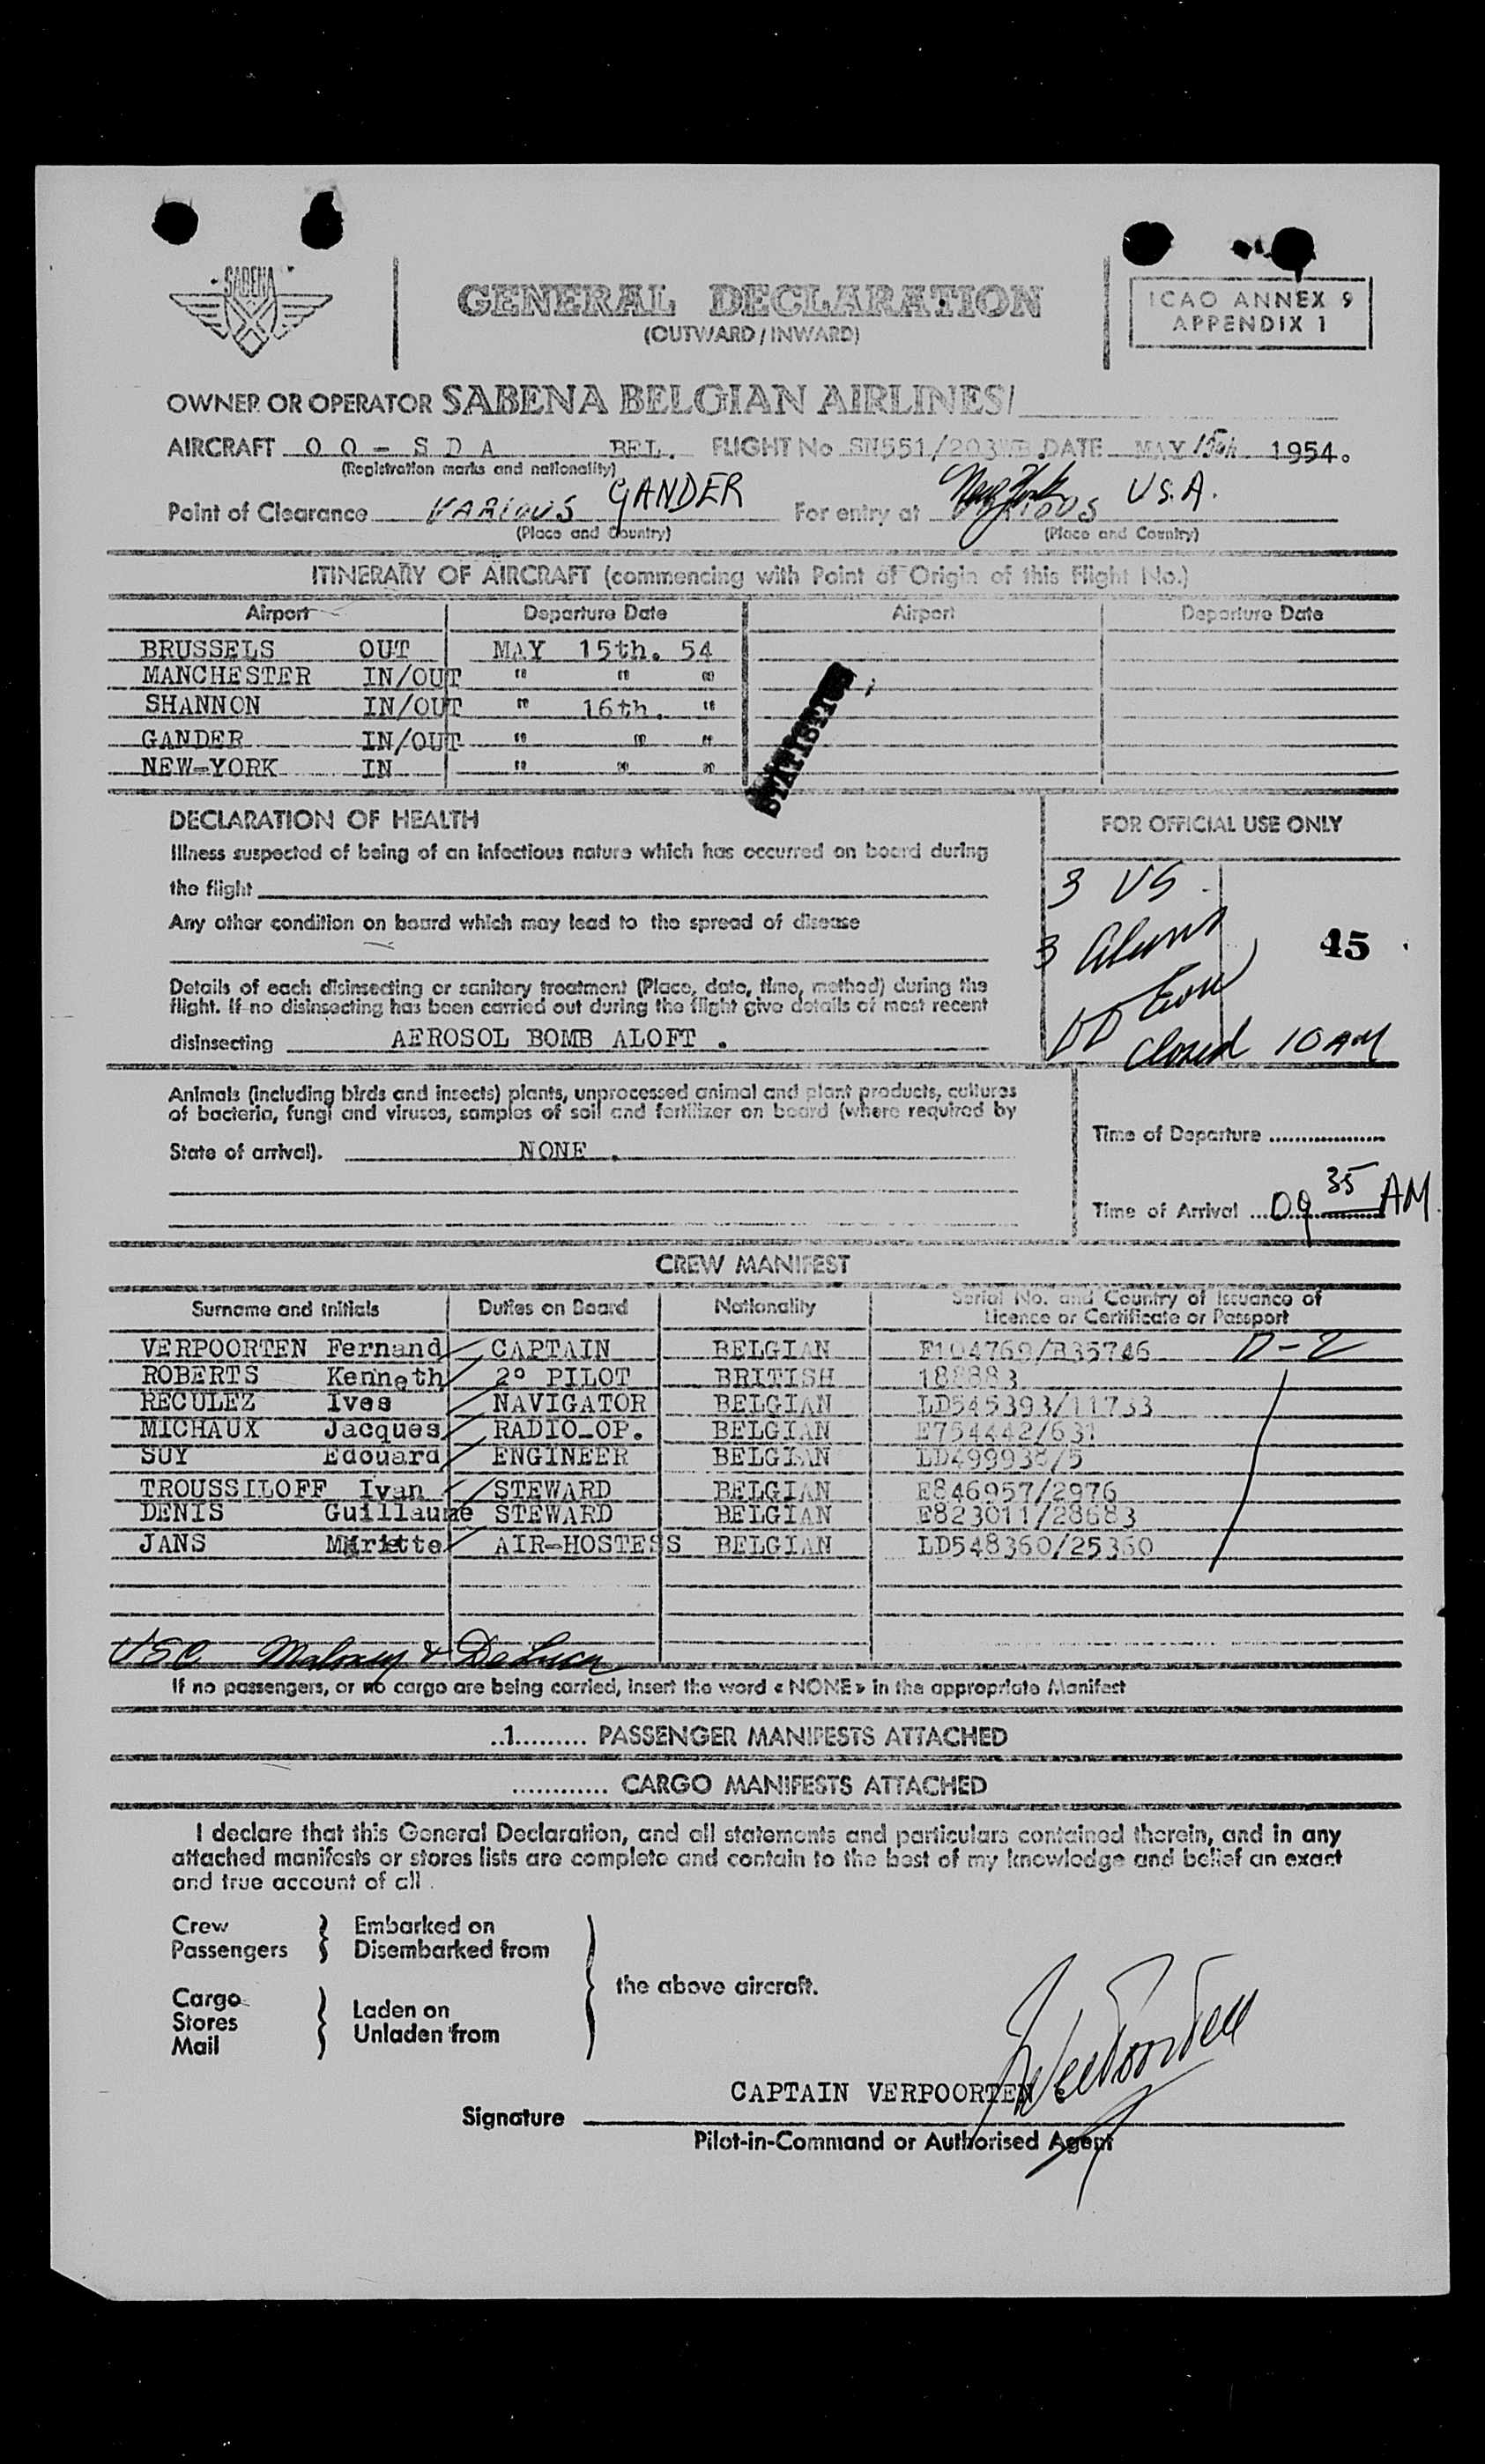 SABENA
GENERAL DECLARATION
(OUTWARD / INWARD)
ICAO ANNEX 9
APPENDIX 1
OWNER OR OPERATOR SABENA BELGIAN AIRLINES/
AIRCRAFT O O - S D A BEL. FLIGHT No SN551/203 DATE MAY 1954.
(Registration marks and nationality)
Point of Clearance VARIOUS GANDER For entry at New York U.S.A.
(Place and Country) (Place and Country)
ITINERARY OF AIRCRAFT (commencing with Point of Origin of this Flight No.)
Airport Departure Date Airport Departure Date
BRUSSELS OUT MAY 15th. 54
MANCHESTER IN/OUT " " "
SHANNON IN/OUT " 16th. "
GANDER IN/OUT " " "
NEW-YORK IN " " "
STATISTICS
DECLARATION OF HEALTH
FOR OFFICIAL USE ONLY
Illness suspected of being of an infectious nature which has occurred on board during
the flight
3 US
Any other condition on board which may lead to the spread of disease
3 Aliens
45
Details of each disinsecting or sanitary treatment (Place, date, time, method) during the
flight. If no disinsecting has been carried out during the flight give details of most recent
disinsecting AEROSOL BOMB ALOFT .
Closed 10 AM
Animals (including birds and insects) plants, unprocessed animal and plant products, cultures
of bacteria, fungi and viruses, samples of soil and fertilizer on board (where required by
State of arrival). NONE .
Time of Departure ..................
Time of Arrival 09 35 AM
CREW MANIFEST
Surname and Initials Duties on Board Nationality Serial No. and Country of Issuance of
Licence or Certificate or Passport
VERPOORTEN Fernand CAPTAIN BELGIAN E104769/B35746 D-2
ROBERTS Kenneth 2° PILOT BRITISH 188883
RECULEZ Ives NAVIGATOR BELGIAN LD545393/11733
MICHAUX Jacques RADIO-OP. BELGIAN E754442/631
SUY Edouard ENGINEER BELGIAN LD499938/5
TROUSSILOFF Ivan STEWARD BELGIAN E846957/2976
DENIS Guillaume STEWARD BELGIAN E823011/28683
JANS Mariette AIR-HOSTESS BELGIAN LD548360/25360
USC Maloney & DeLuca
If no passengers, or no cargo are being carried, insert the word « NONE » in the appropriate Manifest
..1......... PASSENGER MANIFESTS ATTACHED
............ CARGO MANIFESTS ATTACHED
I declare that this General Declaration, and all statements and particulars contained therein, and in any
attached manifests or stores lists are complete and contain to the best of my knowledge and belief an exact
and true account of all .
Crew Embarked on
Passengers Disembarked from
the above aircraft.
Cargo
Stores Laden on
Mail Unladen from
CAPTAIN VERPOORTEN
Signature
Pilot-in-Command or Authorised Agent